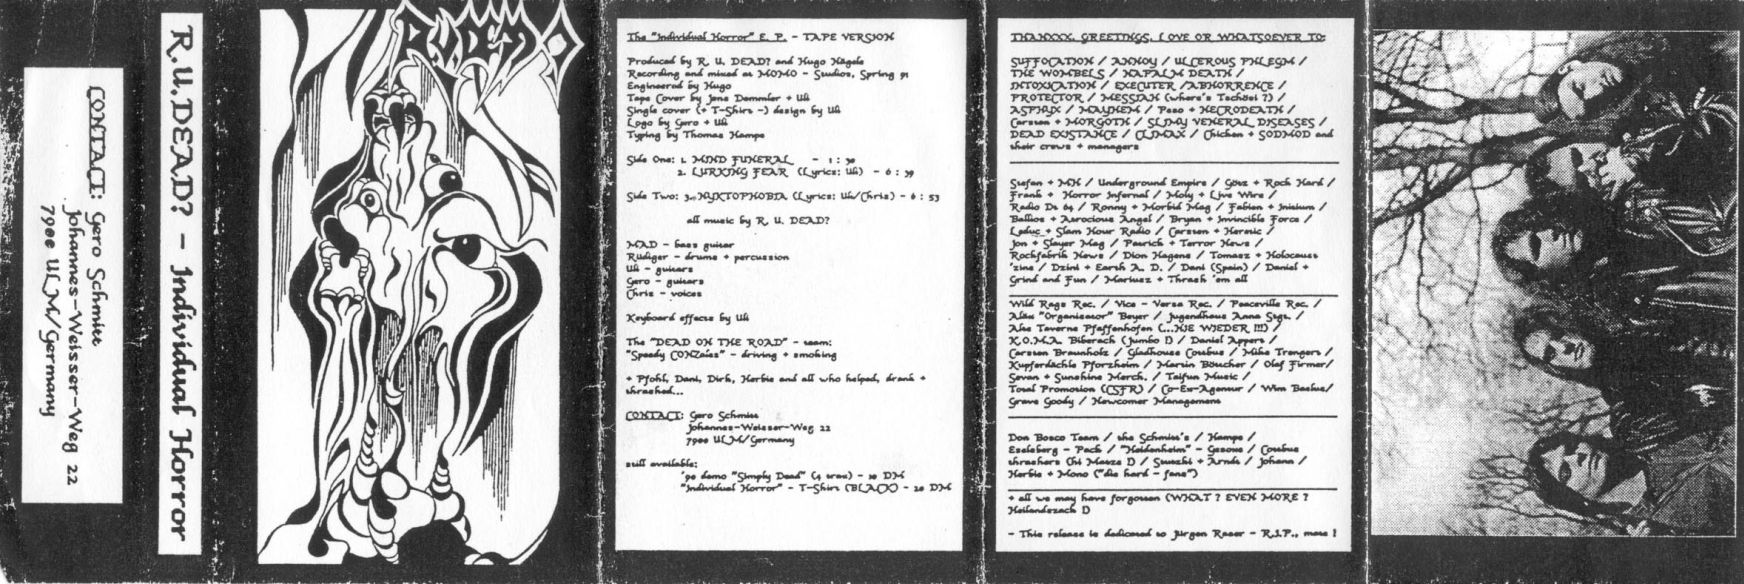 CONTACT: Gero Schmitt
Johannes-Weisser-Weg 22
7900 ULM/Germany
R.U.DEAD? - Individual Horror
The "Individual Horror" E. P. - TAPE VERSION
Produced by R. U. DEAD? and Hugo Hägele
Recording and mixed at MOMO - Studios, Spring 91
Engineered by Hugo
Tape Cover by Jens Demmler + Uli
Single cover (+ T-Shirt -) design by Uli
Logo by Gero + Uli
Typing by Thomas Hampe
Side One: 1. MIND FUNERAL - 1 : 30
2. LURKING FEAR (Lyrics: Uli) - 6 : 39
Side Two: 3. NYKTOPHOBIA (Lyrics: Uli/Chris) - 6 : 53
all music by R. U. DEAD?
MAD - bass guitar
Rüdiger - drums + percussion
Uli - guitars
Gero - guitars
Chris - voices
Keyboard effects by Uli
The "DEAD ON THE ROAD" - team:
"Speedy CONZales" - driving + smoking
+ Pfohl, Dani, Dirk, Herbie and all who helped, drank +
thrashed...
CONTACT: Gero Schmitt
Johannes-Weisser-Weg 22
7900 ULM/Germany
still available:
'90 demo "Simply Dead" (4 trax) - 10 DM
"Individual Horror" - T-Shirt (BLACK) - 20 DM
THANXXX, GREETINGS, LOVE OR WHATSOEVER TO:
SUFFOCATION / ANNOY / ULCEROUS PHLEGM /
THE WOMBELS / NAPALM DEATH /
INTOXICATION / EXECUTER / ABHORRENCE /
PROTECTOR / MESSIAH (where's Tschösi ?) /
ASPHYX / MAYHEM / Pazo + NECRODEATH /
Carsten + MORGOTH / SLIMY VENERAL DISEASES /
DEAD EXISTANCE / CLIMAX / Chicken + SODMOD and
their crews + managers
Stefan + MH / Underground Empire / Götz + Rock Hard /
Frank + Horror Infernal / Moly + Live Wire /
Radio Dt 64 / Ronny + Morbid Mag / Fabien + Initium /
Ballios + Aerocious Angel / Bryan + Invincible Force /
Leduc + Slam Hour Radio / Carsten + Heretic /
Jon + Slayer Mag / Patrick + Terror News /
Rockfabrik News / Dion Hagens / Tomasz + Holocaust
'zine / Dzini + Earth A. D. / Dani (Spain) / Daniel +
Grind and Fun / Mariusz + Thrash 'em all
Wild Rags Rec. / Vice - Versa Rec. / Peaceville Rec. /
Alex "Organisator" Beyer / Jugendhaus Anna Stgt. /
Alte Taverne Pfaffenhofen (...NIE WIEDER !!!) /
K.O.M.A. Biberach (Jumbo !) / Daniel Appers /
Carsten Braunholz / Gladhouse Cottbus / Mike Trengert /
Kupferdächle Pforzheim / Martin Böttcher / Olaf Firmer/
Sevan + Sunshine Merch. / Taifun Music /
Total Promotion (CSFR) / Co-Ex-Agentur / Wim Baelus/
Grave Goody / Newcomer Management
Don Bosco Team / the Schmitt's / Hampe /
Eselsberg - Pack / "Heidenheim" - Gesocs / Cottbus
thrashers (hi Matze !) / Stutzki + Arndt / Johann /
Herbie + Mono ("die hard - fans")
+ all we may have forgotten (WHAT ? EVEN MORE ?
Heilandszack !)
- This release is dedicated to Jürgen Raser - R.I.P., mate !